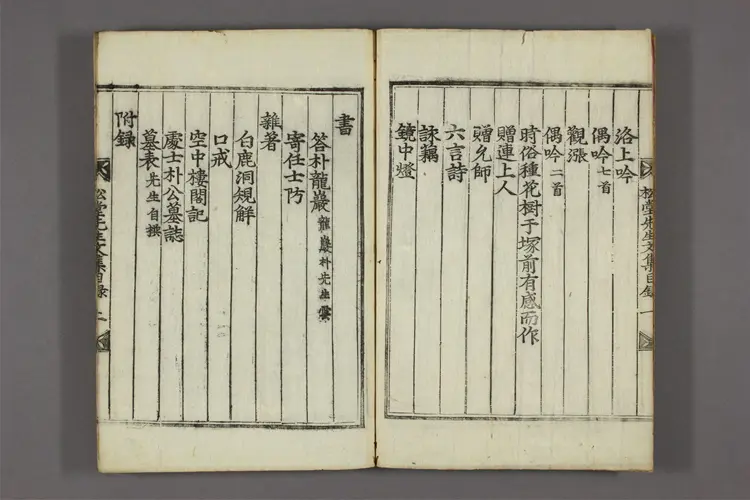 松堂先生文集目錄 一
洛上吟
偶吟 七首
觀漲
偶吟 二首
時俗種花樹于塚前有感而作
贈連上人
贈允師
六言詩
詠藕
鏡中燈
書
答朴龍巖 龍巖朴先生雲
寄任士防
雜著
白鹿洞規解
口戒
空中樓閣記
處士朴公墓誌
墓表 先生自撰
附錄
松堂先生文集目錄 二